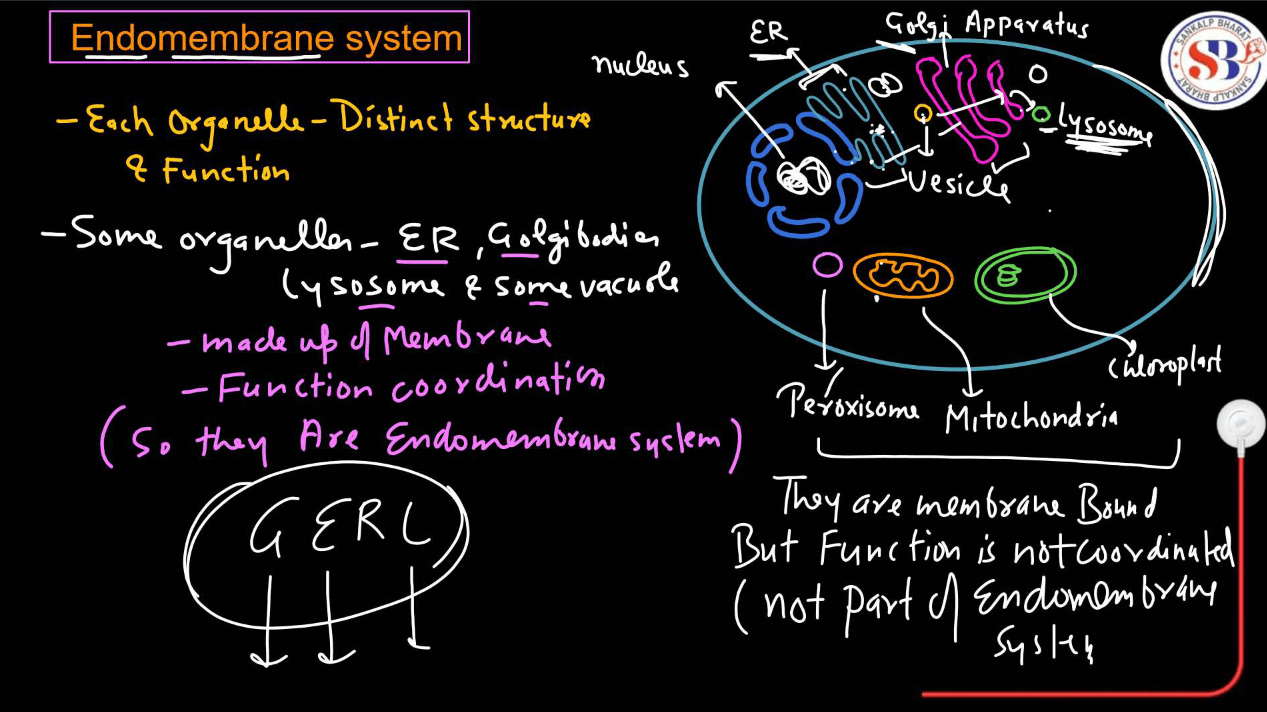 Endomembrane system
- Each Organelle - Distinct structure
& Function
- Some organelles - ER, Golgibodies
Lysosome & some vacuole
- made up of Membrane
- Function coordination
(So they Are Endomembrane system)
GERL
nucleus
ER
Golgi Apparatus
Lysosome
Vesicle
Peroxisome
Mitochondria
Chloroplast
They are membrane Bound
But Function is not coordinated
(not part of Endomembrane
System
SANKALP BHARAT
SB
SANKALP BHARAT